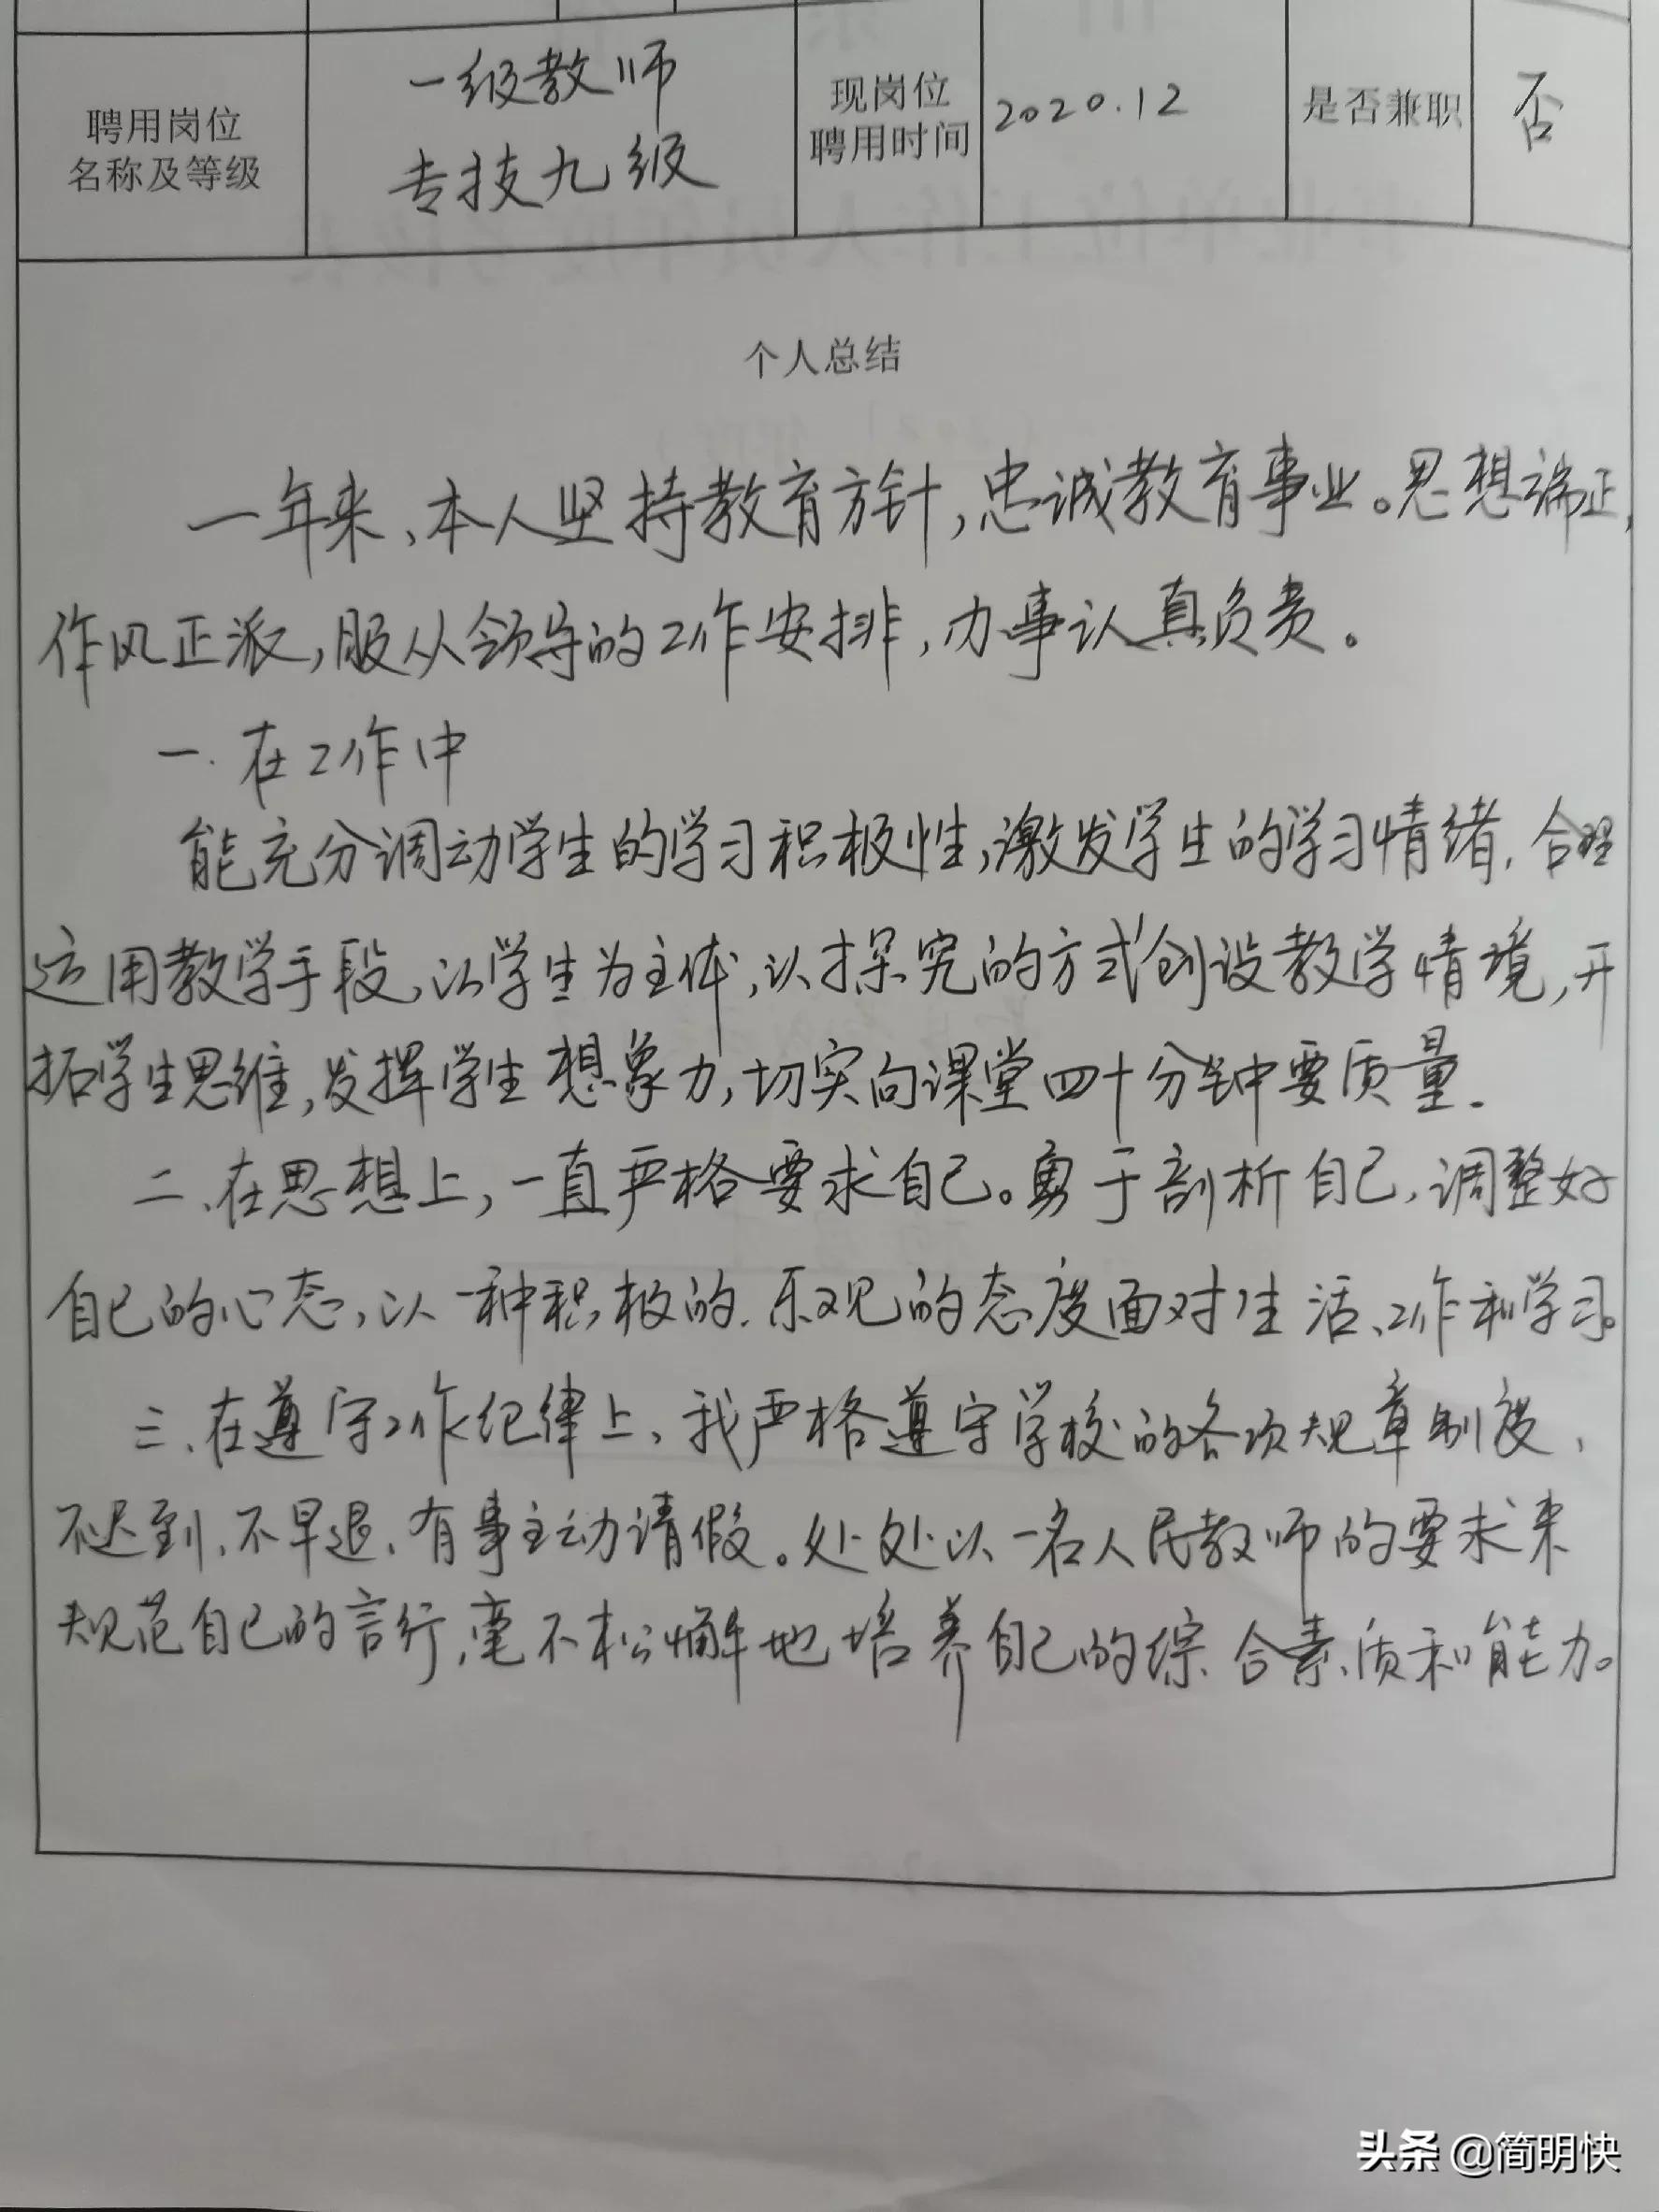 聘用岗位
名称及等级
一级教师
专技九级
现岗位
聘用时间
2020.12
是否兼职
否
个人总结
一年来、本人坚持教育方针,忠诚教育事业。思想端正,
作风正派,服从领导的工作安排,办事认真负责。
一.在工作中
能充分调动学生的学习积极性,激发学生的学习情绪,合理
运用教学手段,以学生为主体,以探究的方式创设教学情境,开
拓学生思维,发挥学生想象力,切实向课堂四十分钟要质量.
二、在思想上,一直严格要求自己。勇于剖析自己,调整好
自己的心态,以一种积极的、乐观的态度面对生活、工作和学习。
三、在遵守工作纪律上、我严格遵守学校的各项规章制度、
不迟到、不早退、有事主动请假。处处以一名人民教师的要求来
规范自己的言行,毫不松懈地培养自己的综合素质和能力。
头条 @简明快